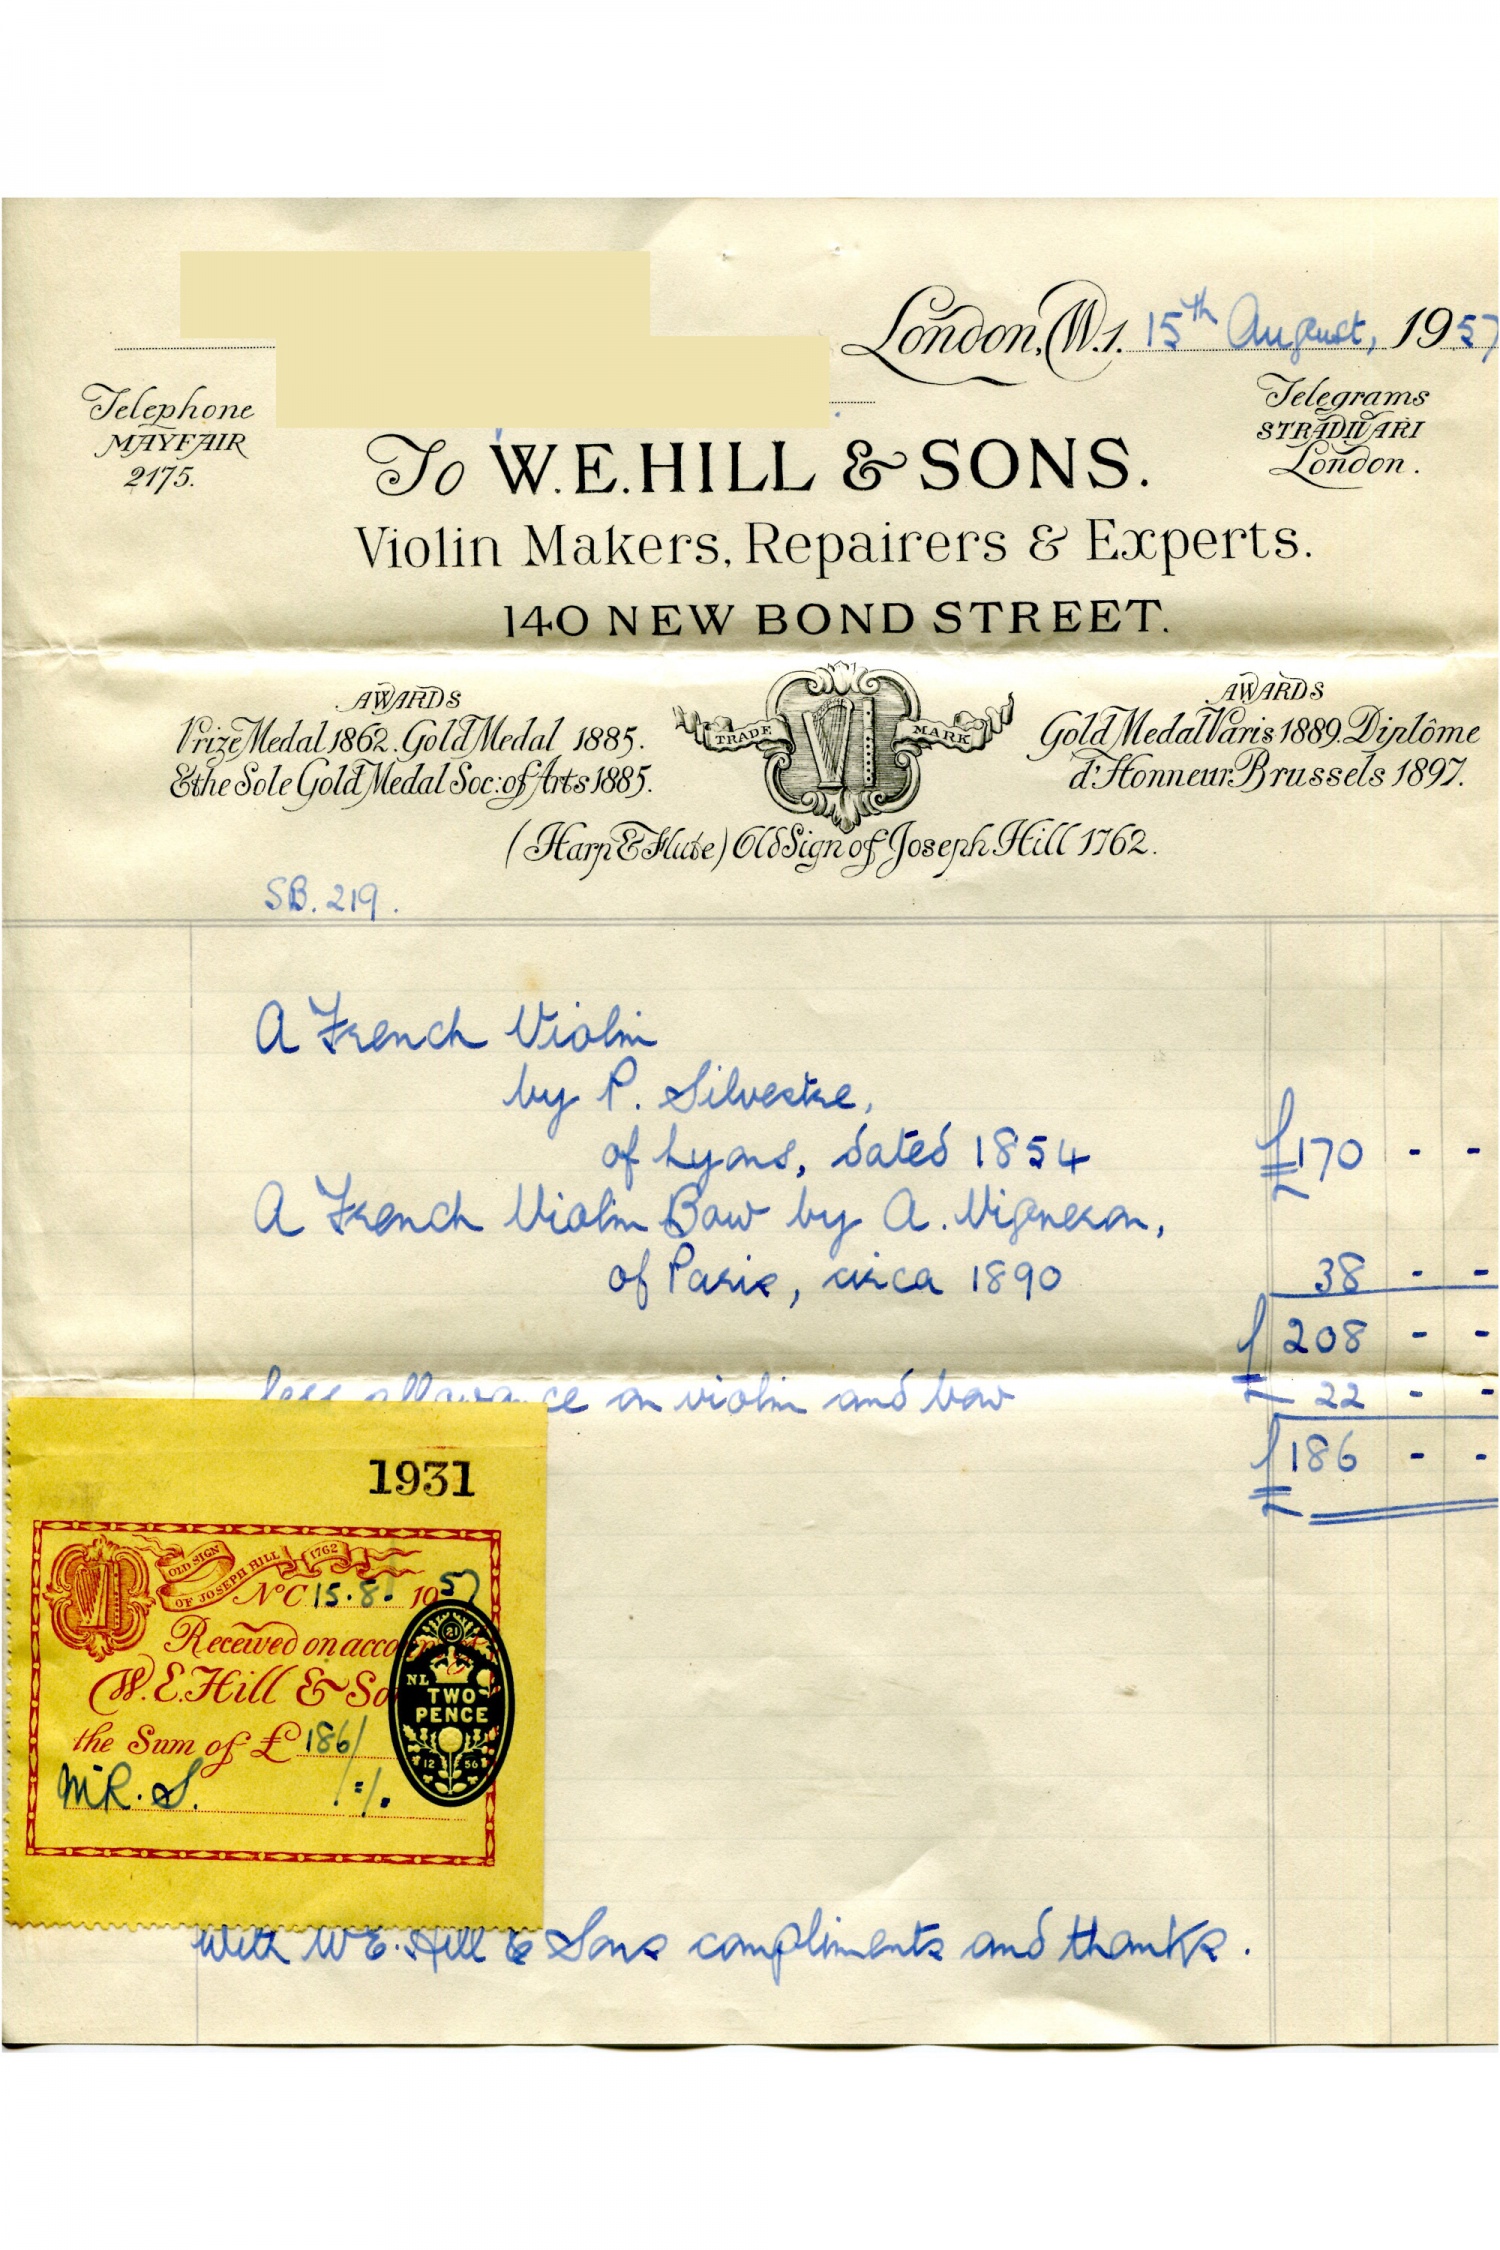 London, W.1. 15th August, 1957
Telephone
MAYFAIR
2175.
Telegrams
STRADIVARI
London.
To W.E. HILL & SONS.
Violin Makers, Repairers & Experts.
140 NEW BOND STREET.
AWARDS
Prize Medal 1862. Gold Medal 1885.
& the Sole Gold Medal Soc: of Arts 1885.
TRADE MARK
AWARDS
Gold Medal Paris 1889. Diplôme
d'Honneur Brussels 1897.
(Harp & Flute) Old Sign of Joseph Hill 1762.
SB. 219.
A French Violin
by P. Silvestre,
of Lyons, dated 1854 £170 - -
A French Violin Bow by A. Vigneron,
of Paris, circa 1890 38 - -
£208 - -
less allowance on violin and bow 22 - -
£186 - -
1931
OLD SIGN
OF JOSEPH HILL 1762
No C 15.8. 1957
Received on account
W.E. Hill & So
the Sum of £ 186/
21
NL
TWO
PENCE
12 56
With W.E. Hill & Sons compliments and thanks.